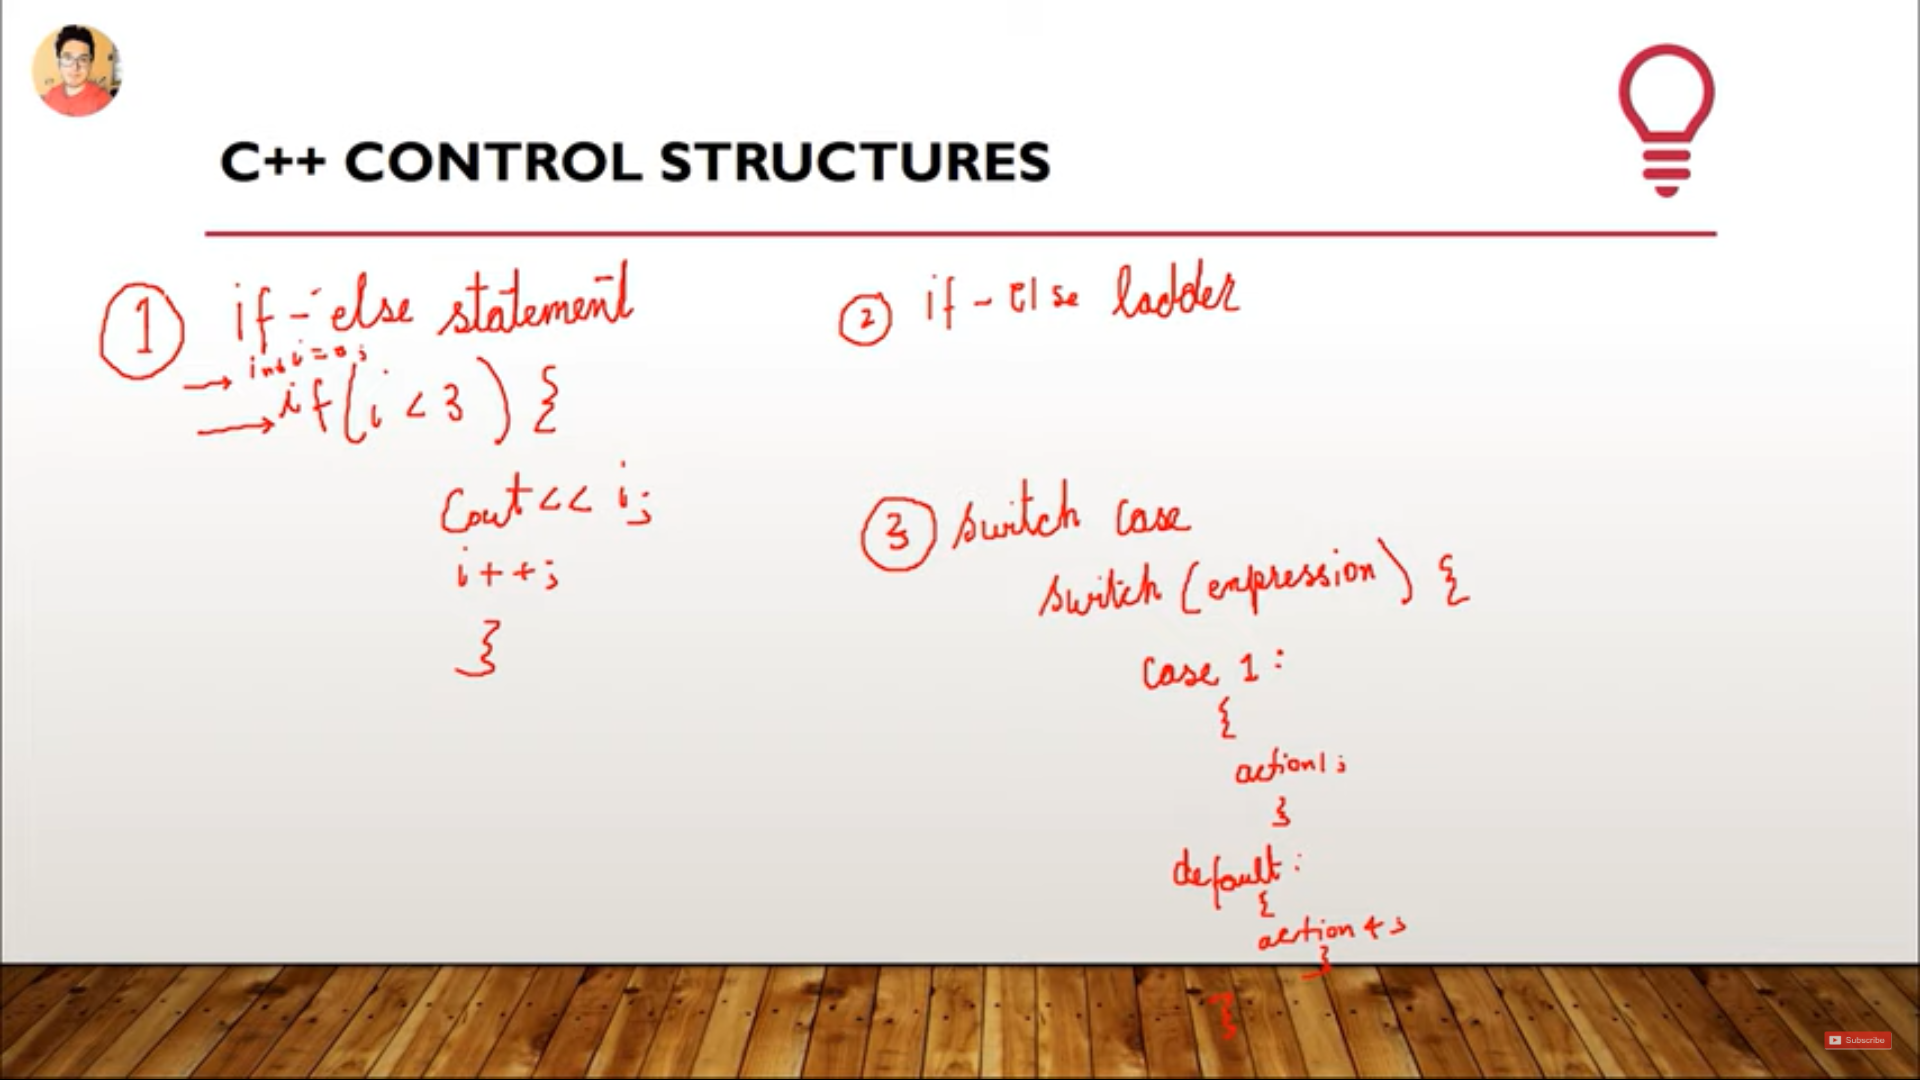 C++ CONTROL STRUCTURES
① if-else statement
int i=0;
→ if(i<3) {
cout<< i;
i++;
}
② if-else ladder
③ switch case
switch (expression) {
case 1:
{
action1;
}
default:
{
action4;
}
}
Subscribe